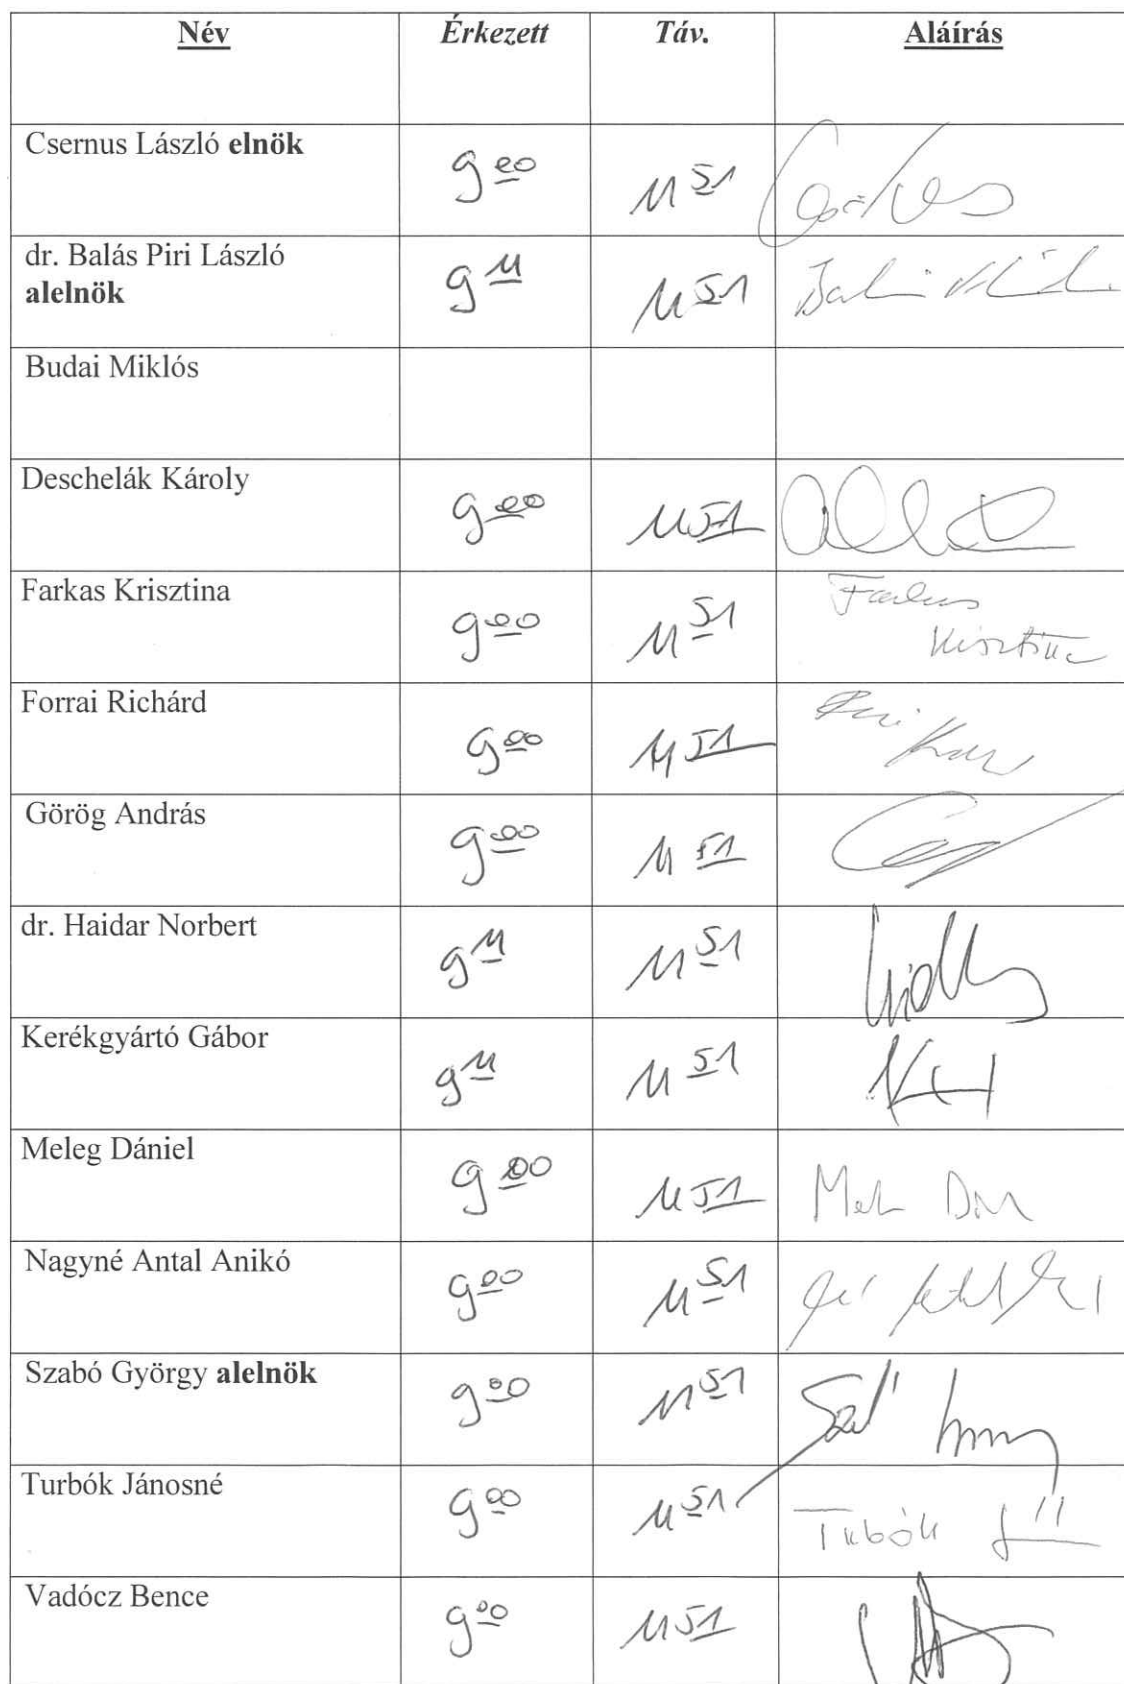 Név Érkezett Táv. Aláírás
Csernus László elnök 9 00 11 51
dr. Balás Piri László 9 11 11 51
alelnök
Budai Miklós
Deschelák Károly 9 00 11 51
Farkas Krisztina 9 00 11 51 Farkas
Krisztina
Forrai Richárd 9 00 11 51
Görög András 9 00 11 51
dr. Haidar Norbert 9 11 11 51
Kerékgyártó Gábor 9 11 11 51
Meleg Dániel 9 00 11 51
Nagyné Antal Anikó 9 00 11 51
Szabó György alelnök 9 00 11 51
Turbók Jánosné 9 00 11 51 Turbók
Vadócz Bence 9 00 11 51